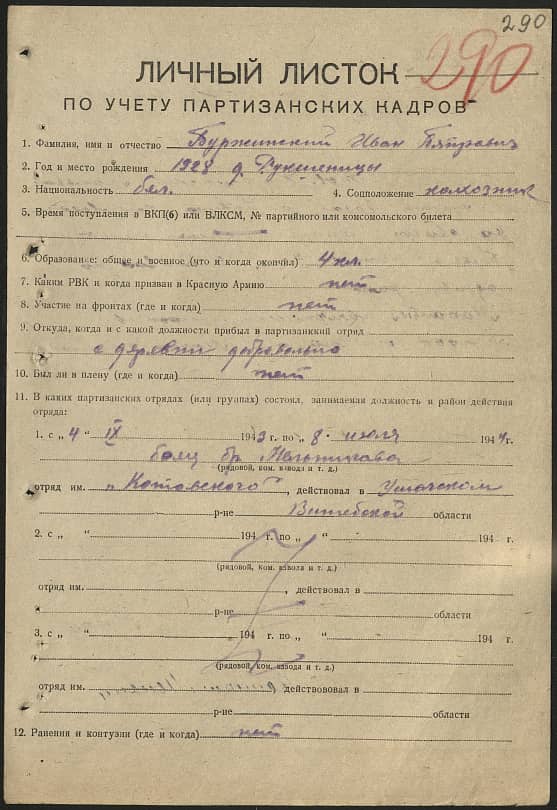 290
290
ЛИЧНЫЙ ЛИСТОК
ПО УЧЕТУ ПАРТИЗАНСКИХ КАДРОВ
1. Фамилия, имя и отчество Буржинский Иван Пятрович
2. Год и место рождения 1928 д. Рукшеницы
3. Национальность бял. 4. Соцположение колхозник
5. Время поступления в ВКП(б) или ВЛКСМ, № партийного или комсомольского билета
6. Образование: общее и военное (что и когда окончил) 4 кл.
7. Каким РВК и когда призван в Красную Армию нет
8. Участие на фронтах (где и когда) нет
9. Откуда, когда и с какой должности прибыл в партизанский отряд
с деревни добровольно
10. Был ли в плену (где и когда) нет
11. В каких партизанских отрядах (или группах) состоял, занимаемая должность и район действия
отряда:
1. с „ 4 “ IX 1943 г. по „ 8 “ июля 1944 г.
боец бр. Мельникова
(рядовой, ком. взвода и т. д.)
отряд им. „Котовского“, действовал в Ушачском
р-не Витебской области
2. с „ “ 194 г. по „ “ 194 г.
(рядовой, ком. взвода и т. д.)
отряд им. , действовал в
р-не области
3. с „ “ 194 г. по „ “ 194 г.
(рядовой, ком. взвода и т. д.)
отряд им. действововал в
р-не области
12. Ранения и контузии (где и когда) нет